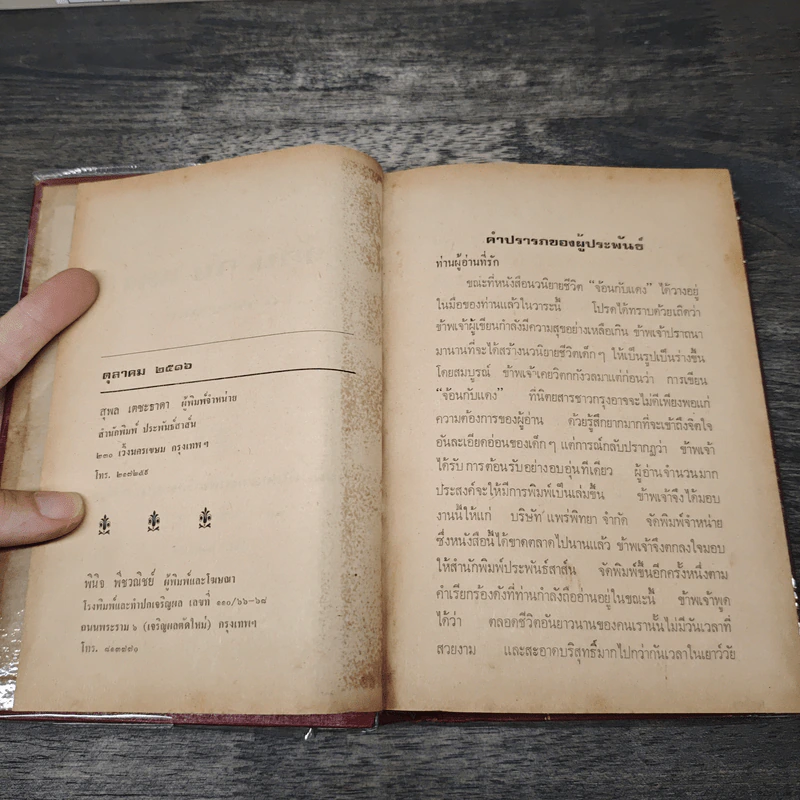 ตุลาคม ๒๕๑๖
สุพล เตชะธาดา ผู้พิมพ์จำหน่าย
สำนักพิมพ์ ประพันธ์สาส์น
๒๓๐ เวิ้งนครเขษม กรุงเทพ ฯ
โทร. ๒๑๗๒๕๕
พินิจ พีชวณิชย์ ผู้พิมพ์และโฆษณา
โรงพิมพ์และทำปกเจริญผล เลขที่ ๑๑๐/๖๖-๖๘
ถนนพระราม ๖ (เจริญผลตัดใหม่) กรุงเทพฯ
โทร. ๘๑๓๗๗๑
คำปรารภของผู้ประพันธ์
ท่านผู้อ่านที่รัก
ขณะที่หนังสือนวนิยายชีวิต “จ้อนกับแดง” ได้วางอยู่
ในมือของท่านแล้วในวาระนี้ โปรดได้ทราบด้วยเถิดว่า
ข้าพเจ้าผู้เขียนกำลังมีความสุขอย่างเหลือเกิน ข้าพเจ้าปราถนา
มานานที่จะได้สร้างนวนิยายชีวิตเด็กๆ ให้เป็นรูปเป็นร่างขึ้น
โดยสมบูรณ์ ข้าพเจ้าเคยวิตกกังวลมาแต่ก่อนว่า การเขียน
“จ้อนกับแดง” ที่นิตยสารชาวกรุงอาจจะไม่ดีเพียงพอแก่
ความต้องการของผู้อ่าน ด้วยรู้สึกยากมากที่จะเข้าถึงจิตใจ
อันละเอียดอ่อนของเด็กๆ แต่การณ์กลับปรากฏว่า ข้าพเจ้า
ได้รับ การต้อนรับอย่างอบอุ่นทีเดียว ผู้อ่านจำนวนมาก
ประสงค์จะให้มีการพิมพ์เป็นเล่มขึ้น ข้าพเจ้าจึงได้มอบ
งานนี้ให้แก่ บริษัท แพร่พิทยา จำกัด จัดพิมพ์จำหน่าย
ซึ่งหนังสือนี้ได้ขาดตลาดไปนานแล้ว ข้าพเจ้าจึงตกลงใจมอบ
ให้สำนักพิมพ์ประพันธ์สาส์น จัดพิมพ์ขึ้นอีกครั้งหนึ่งตาม
คำเรียกร้องดังที่ท่านกำลังถืออ่านอยู่ในขณะนี้ ข้าพเจ้าพูด
ได้ว่า ตลอดชีวิตอันยาวนานของคนเรานั้นไม่มีวันเวลาที่
สวยงาม และสะอาดบริสุทธิ์มากไปกว่ากันเวลาในเยาว์วัย